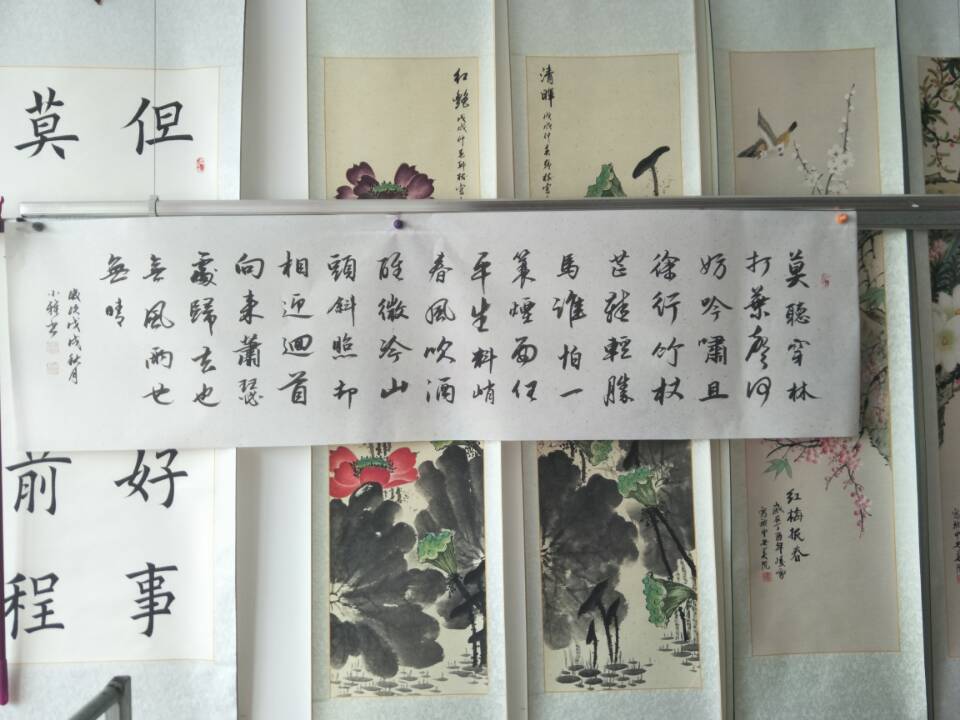 莫聽穿林
打葉聲何
妨吟嘯且
徐行竹杖
芒鞋輕勝
馬誰怕一
蓑煙雨任
平生料峭
春風吹酒
醒微冷山
頭斜照却
相迎迴首
向来蕭瑟
處歸去也
无風雨也
無晴
歲次戊戌秋月
小 書
但
好事
莫
前程
红艳
戊戌仲
清暉
戊戌仲
红梅报春